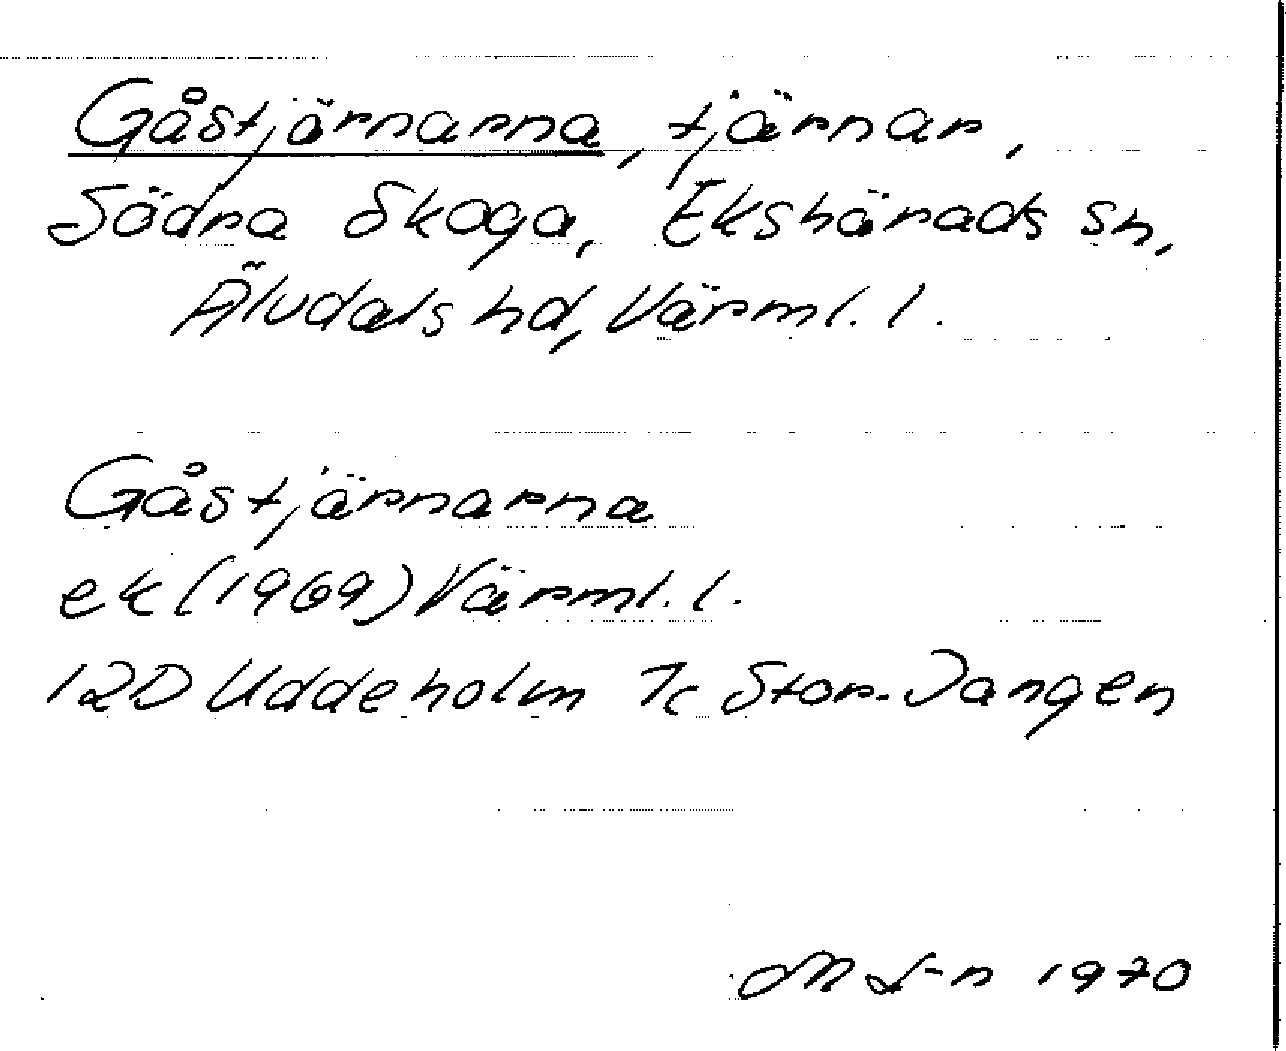 Gåstjärnarna, tjärnar,
Södra Skoga, Ekshärads sn,
Älvdals hd, Värml. l.
Gåstjärnarna
ek (1969) Värml. l.
12D Uddeholm 7c Stor-Jangen
M L-n 1970